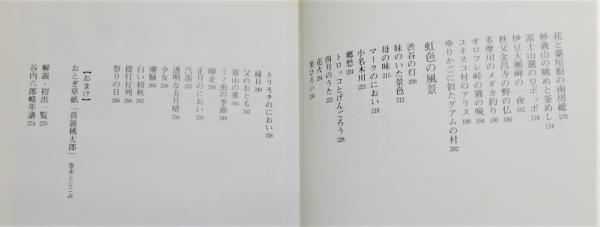 花と藁屋根の南房総 170
妙義山の眺めと釜めし 174
富士山麓の豆ポッポ 178
伊豆七瀬岬の一夜 182
秩父金昌寺の野の仏 186
多摩川のメダカ釣り 190
オロフレ峠の霧の晩 194
ユネスコ村のアリス 198
ゆりかごに似たグアムの村 202
虹色の風景
渋谷の灯 208
妹のいた景色 212
母の味 215
マークのにおい 218
小名木川 221
郷愁 224
トロッコとげんごろう 228
四月のうた 232
花火
栗ひろい
トリモチのにおい 238
縁日 240
父のおとも 242
富山の薬 244
ミノ虫の季節 246
師走 248
正月のにおい 250
汽笛 252
透明な五月晴 254
少女 258
潮騒 260
白い初秋 262
提灯行列 264
祭りの日 266
【おまけ】
おとぎ草紙「真説桃太郎」 巻末とじこみ
解説・初出一覧 270
谷内六郎略年譜 274